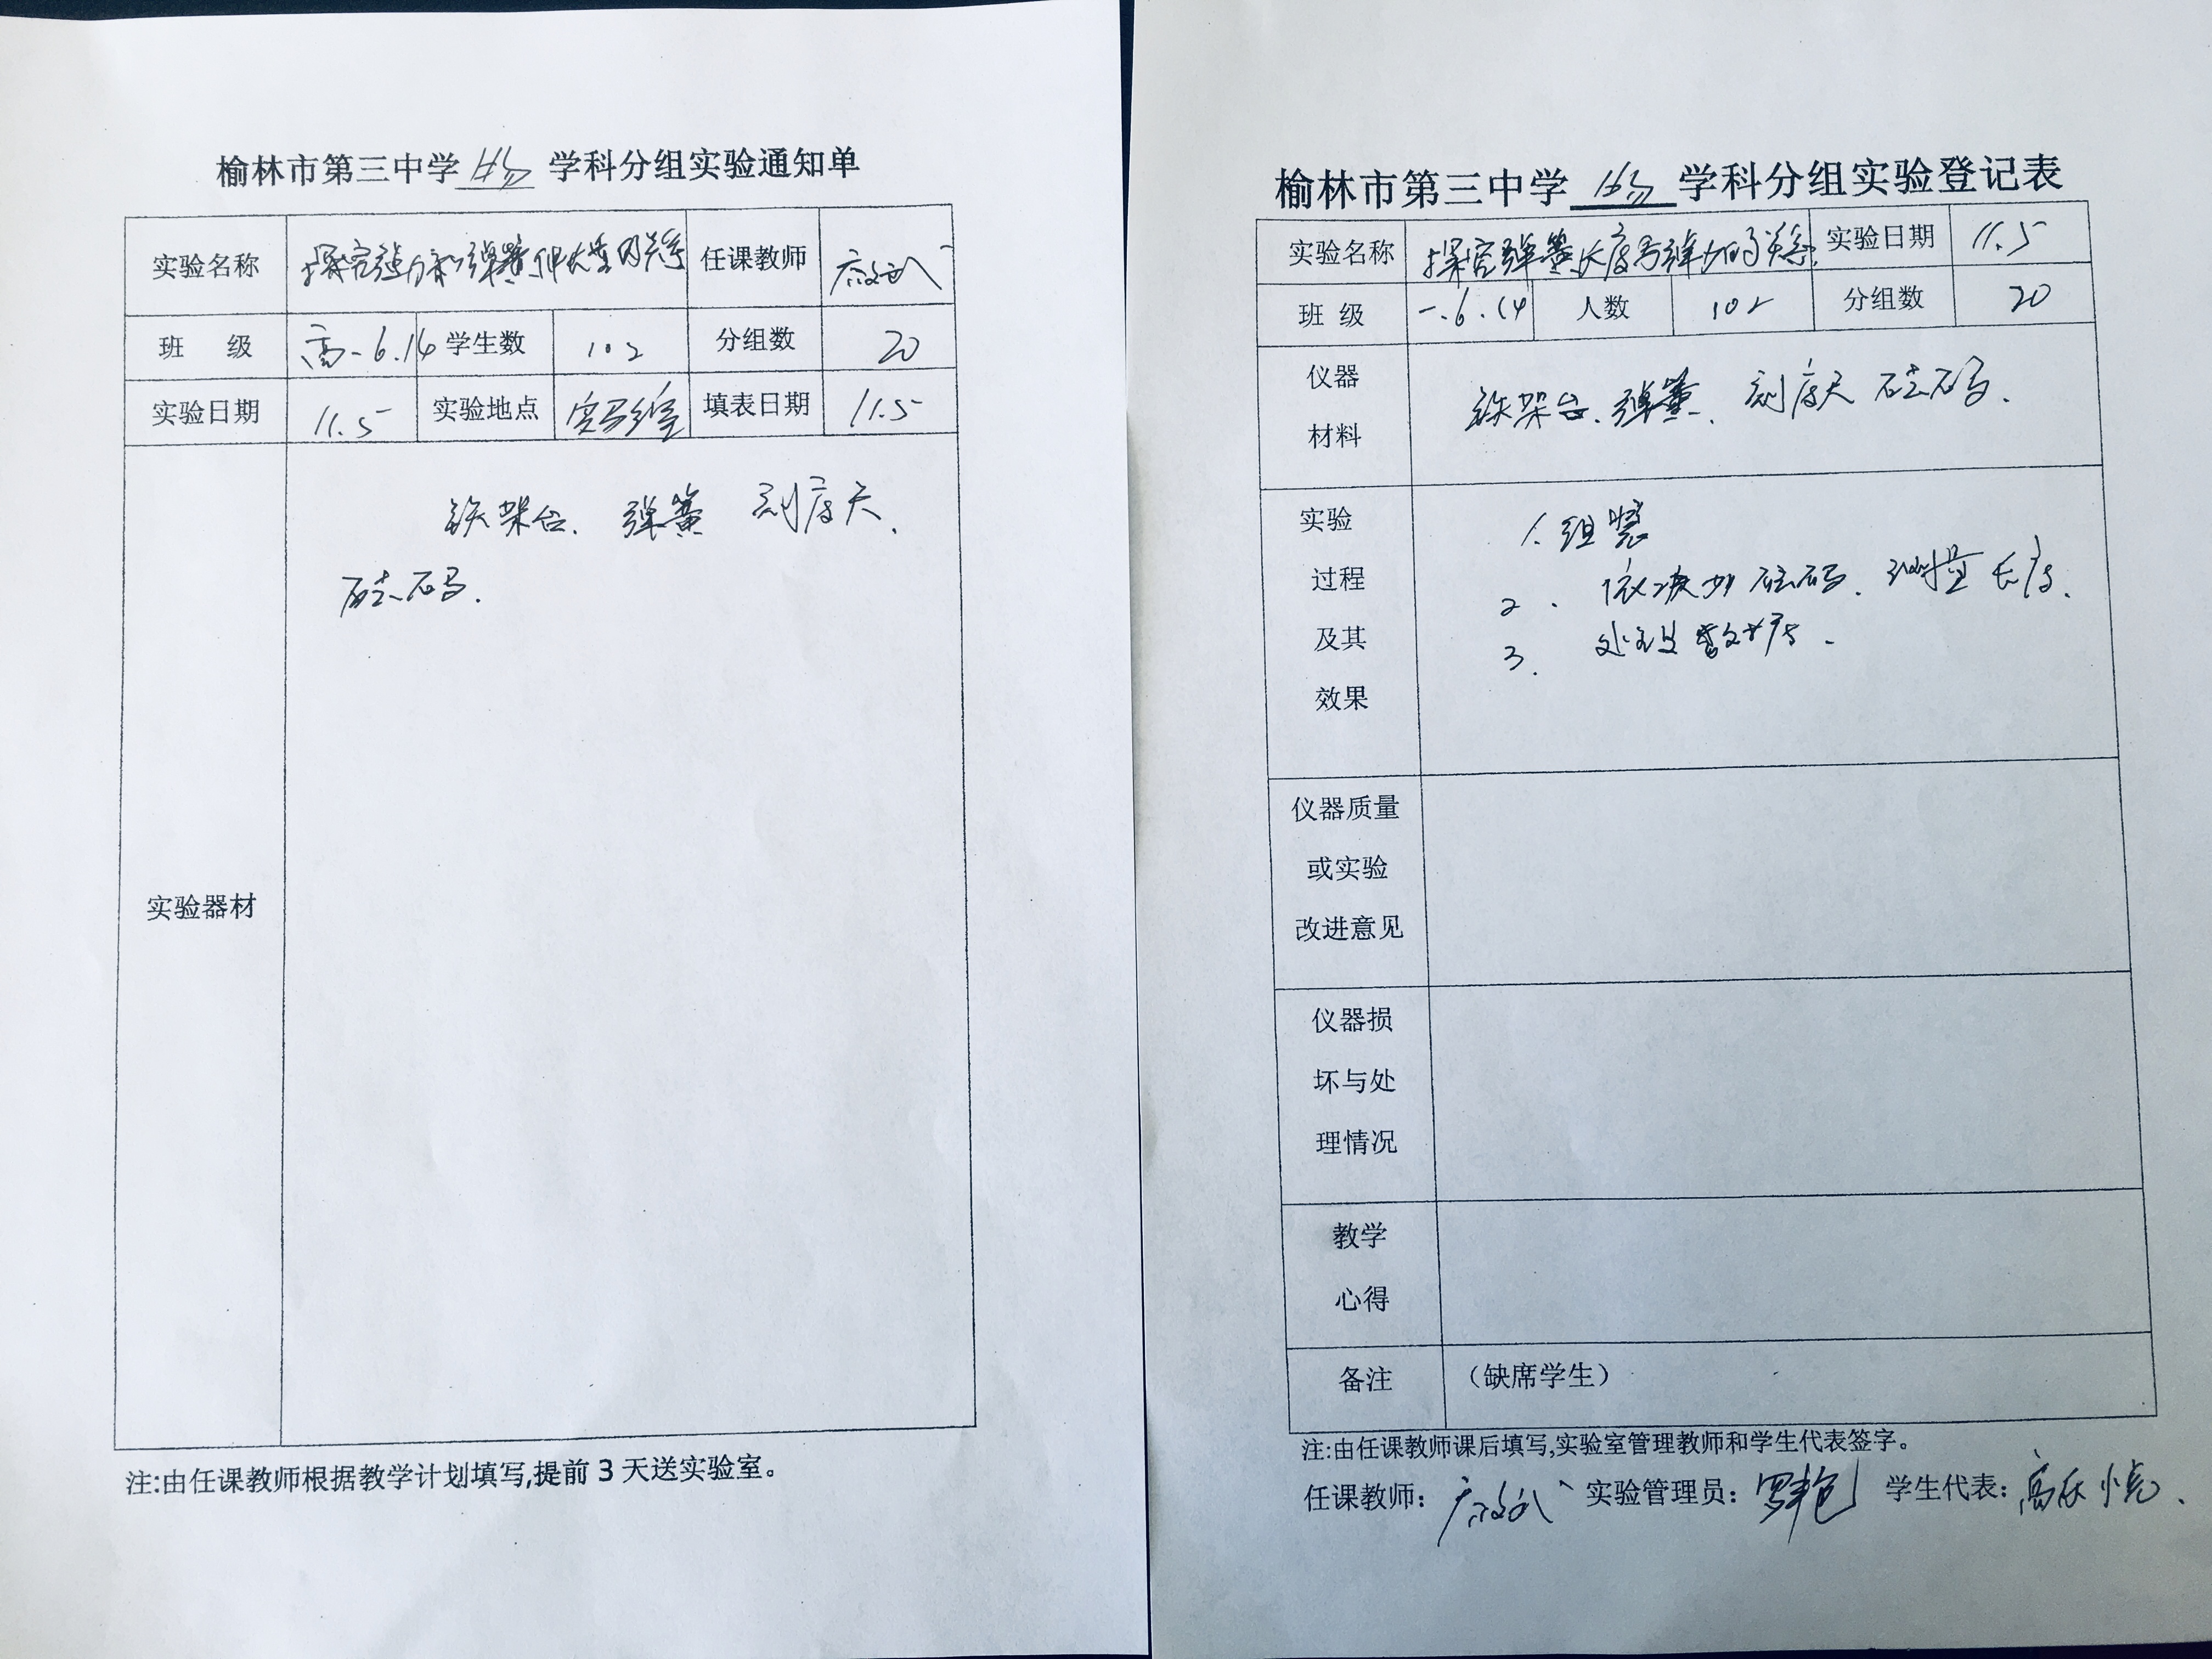 榆林市第三中学 物 学科分组实验通知单
实验名称 探究弹力和弹簧伸长量的关系 任课教师
班 级 高一6.14 学生数 102 分组数 20
实验日期 11.5 实验地点 实验室 填表日期 11.5
实验器材
铁架台、弹簧 刻度尺、
砝码.
注:由任课教师根据教学计划填写,提前3天送实验室。
榆林市第三中学 物 学科分组实验登记表
实验名称 探究弹簧长度与弹力的关系 实验日期 11.5
班 级 一.6.14 人数 102 分组数 20
仪器
材料
铁架台、弹簧、刻度尺 砝码.
实验
过程
及其
效果
1.组装
2. 依次加砝码、测量长度.
3. 处理数据.
仪器质量
或实验
改进意见
仪器损
坏与处
理情况
教学
心得
备注 （缺席学生）
注:由任课教师课后填写,实验室管理教师和学生代表签字。
任课教师: 实验管理员: 学生代表: